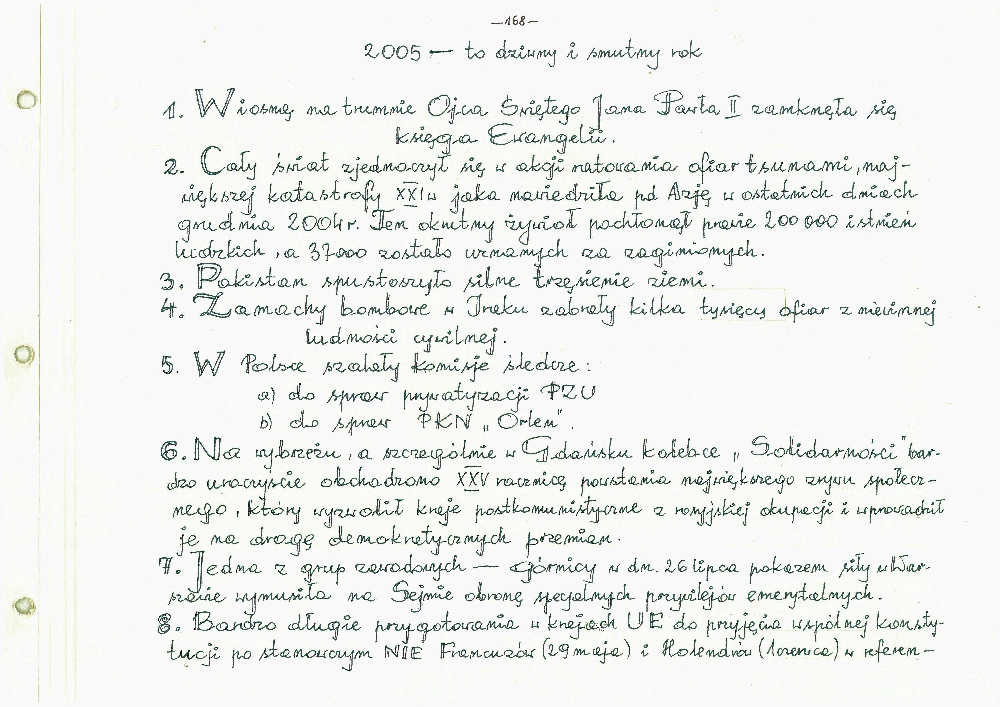 —168—
2005 — to dziwny i smutny rok
1. Wiosnę na trumnie Ojca Świętego Jana Pawła II zamknęła się
księga Ewangelii.
2. Cały świat zjednoczył się w akcji ratowania ofiar tsunami, naj-
większej katastrofy XXIw jaka nawiedziła pd Azję w ostatnich dniach
grudnia 2004r. Ten okrutny żywioł pochłonął prawie 200 000 istnień
ludzkich, a 37000 zostało uznanych za zaginionych.
3. Pakistan spustoszyło silne trzęsienie ziemi.
4. Zamachy bombowe w Iraku zabrały kilka tysięcy ofiar z niewinnej
ludności cywilnej.
5. W Polsce szalały komisje śledcze:
a) do spraw prywatyzacji PZU
b) do spraw PKN „Orlen".
6. Na wybrzeżu, a szczególnie w Gdańsku kolebce „Solidarności" bar-
dzo uroczyście obchodzono XXV rocznicę powstania największego zrywu społecz-
nego, który wyzwolił kraje postkomunistyczne z rosyjskiej okupacji i wprowadził
je na drogę demokratycznych przemian.
7. Jedna z grup zawodowych — górnicy w dn. 26 lipca pokazem siły w War-
szawie wymusiła na Sejmie obronę specjalnych przywilejów emerytalnych.
8. Bardzo długie przygotowania w krajach UE do przyjęcia wspólnej konsty-
tucji po stanowczym NIE Francuzów (29 maja) i Holendrów (1czerwca) w referen-